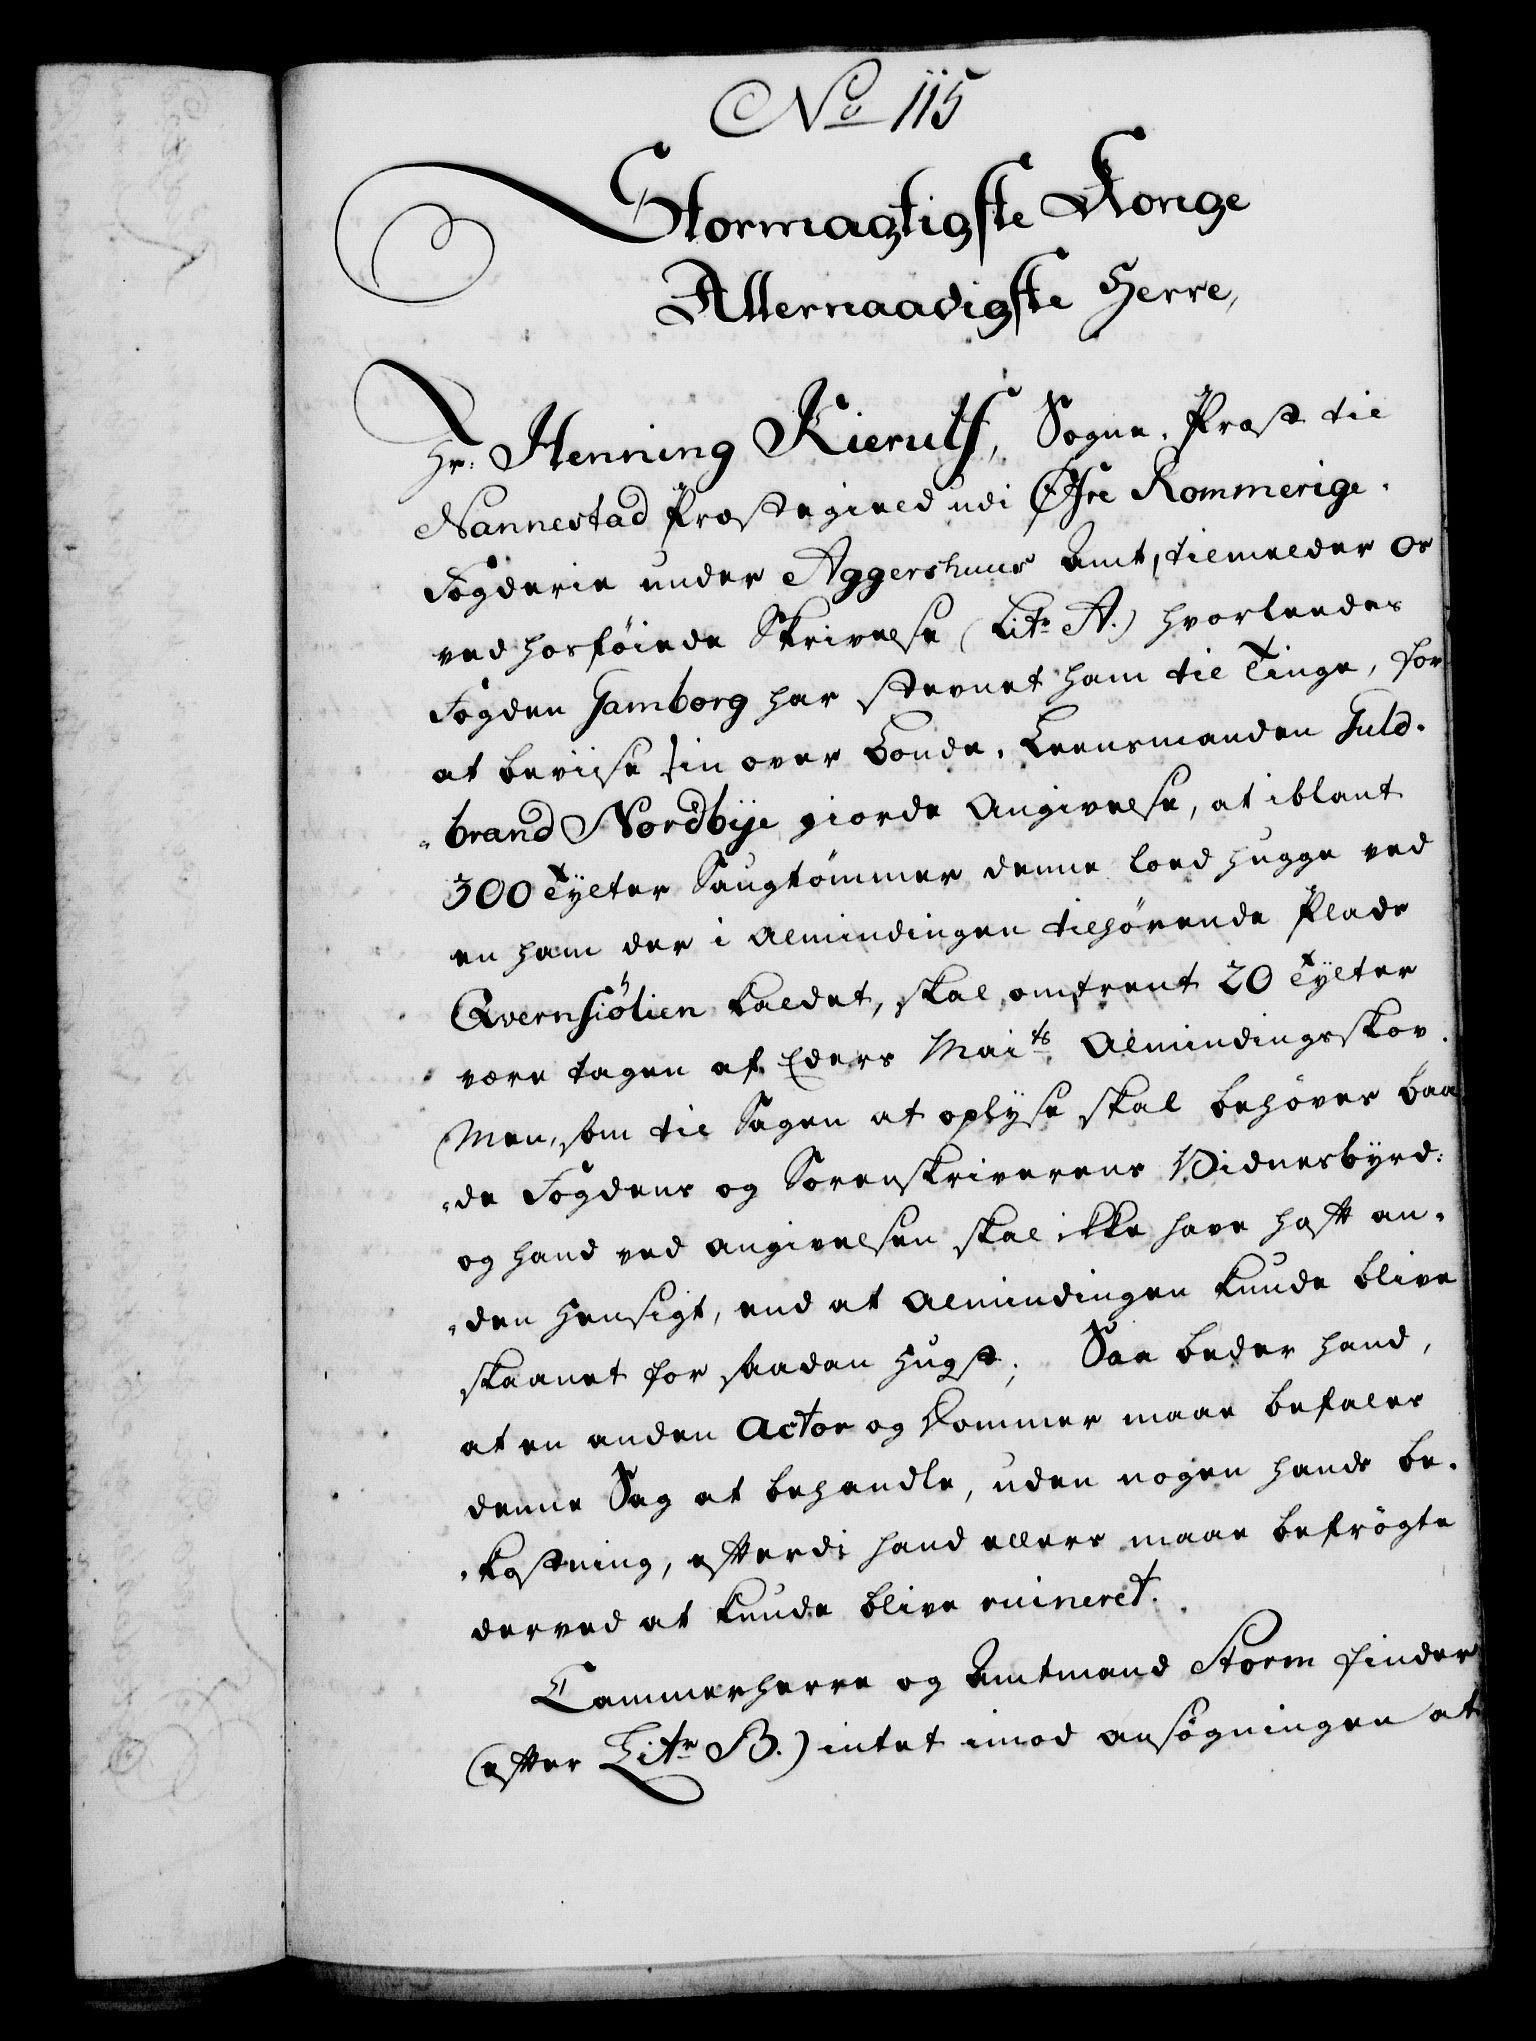 No 115
Stormagtigste Konge
Allernaadigste Herre,
Hr: Henning Kierulf, Sogne-Præst til
Nannestad Præstegield udi Øfre Rommerige-
Fogderie under Aggershuus Amt, tilmelder os
ved hosføiede Skrivelse (Litr A.) hvorledes
Fogden Gamborg har stevnet ham til Tinge, for
at beviise sin over Bonde-Leensmanden Guld-
brand Nordbye giorde Angivelse, at iblant
300 Tylter Saugtømmer denne loed hugge ved
en ham der i Almindingen tilhørende Plads
Qvernsiølien kaldet, skal omtrent 20 Tylter
være tagen af Eders Maits Almindingsskov.
Men, som til Sagen at oplyse skal behøves baa
de Fogdens og Sorenskriverens Vidnesbyrd:
og hand ved angivelsen skal ikke have haft an-
den Hensigt, end at Almindingen kunde blive
skaanet for saadan Hugst; Saa beder hand,
at en anden Actor og Dommer maae befales
denne Sag at behandle, uden nogen hands be-
kostning, efterdi hand ellers maae befrøgte
derved at kunde blive ruineret.
Cammerherre og Amtmand Storm finder
(efter Litr B.) intet imod ansøgningen at